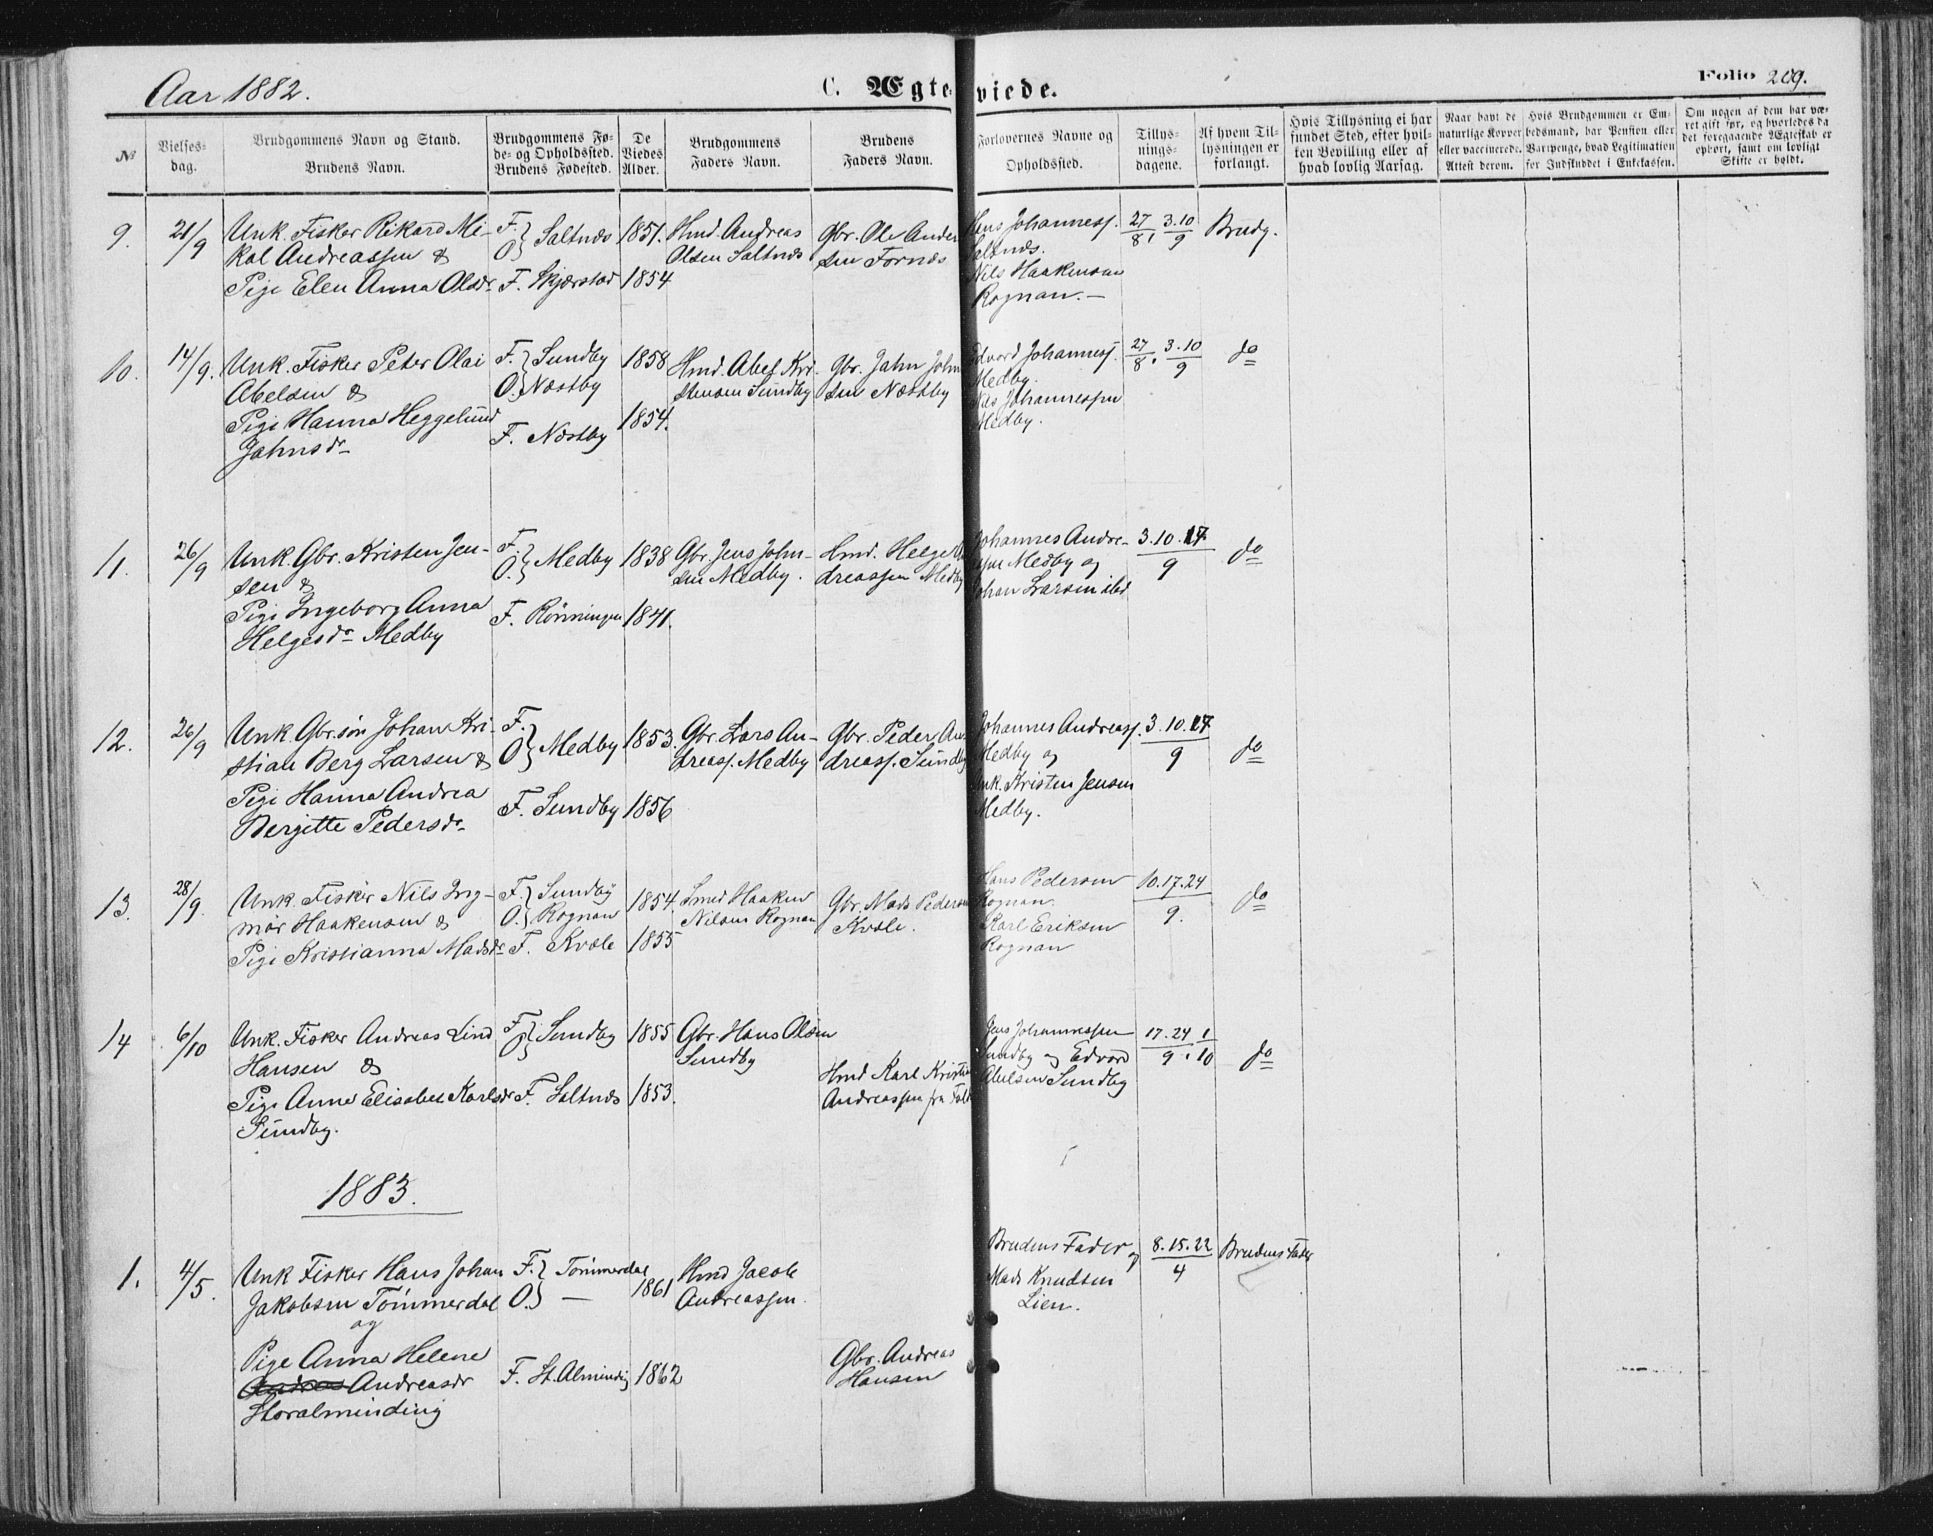 Aar 1882.
C. Ægteviede.
Folio 209.
№
Vielses-
dag.
Brudgommens Navn og Stand.
Brudens Navn.
Brudgommens Fø-
de- og Opholdssted.
Brudens Fødested.
De
Viedes
Alder.
Brudgommens
Faders Navn.
Brudens
Faders Navn.
Forlovernes Navne og
Opholdssted.
Tillys-
nings-
dagene.
Af hvem Til-
lysningen er
forlangt.
Hvis Tillysning ei har
fundet Sted, efter hvil-
ken Bevilling eller af
hvad lovlig Aarsag.
Naar havt de
naturlige Kopper
eller vaccinerede.
Attest derom.
Hvis Brudgommen er Em-
bedsmand, har Pension eller
Vartpenge, hvad Legitimation
for Indskuddet i Enkekassen.
Om nogen af dem har væ-
ret gift før, og hvorledes da
det foregaaende Ægteskab er
ophørt, samt om lovligt
Skifte er holdt.
9. 21/9
Unk. Fisker Rikard Mi-
kal Andreassen &
Pige Elen Anna Olsdr
F. } Saltnæs
O
F. Skjerstad
1851.
1854
Hmd. Andreas
Olsen Saltnæs
Gbr. Ole Ander
sen Fornæs
Jens Johanness.
Saltnæs.
Nils Haakensen
Rognan.—
27/8, 3.10/9
Brudg.
10. 14/9.
Unk. Fisker Peter Olai
Abelsen &
Pige Hanna Heggelund
Jahnsdr
F. } Sundby
O. Næstby
F. Næstby
1858
1854.
Hmd. Abel Kri-
stensen Sundby
Gbr. Jahn John
sen Næstby
Edvard Johanness.
Medby.
Nils Johannessen
Medby.
27/8. 3.10/9
do
11. 26/9
Unk. Gbr. Kristen Jen-
sen &
Pige Ingeborg Anna
Helgesdr Medby
F. } Medby
O.
F. Rönningen
1838
1841.
Gbr. Jens John-
sen Medby.
Hmd. Helge An
dreassen Medby
Johannes Andre-
assen Medby og
Johan Larsen ibd
3.10.17/9
do
12. 26/9
Unk. Gbr.sön Johan Kri-
stian Berg Larsen &
Pige Hanna Andrea
Bergitte Pedersdr
F. } Medby
O
F. Sundby
1853.
1856
Gbr. Lars An-
dreass. Medby
Gbr. Peder An
dreass. Sundby
Johannes Andreass.
Medby og
Unk. Kristen Jensen
Medby.
3.10.17/9
do
13. 28/9.
Unk. Fisker Nils Ing-
mar Haakensen &
Pige Kristianna Madsdr
F. } Sundby
O. Rognan
F. Kvæle
1854.
1855
Smed Haaken
Nilsen Rognan
Gbr. Mads Pedersen
Kvæle.
Hans Pedersen
Rognan.
Karl Eriksen
Rognan
10.17.24/9.
do
14 6/10
Unk. Fisker Andreas Lind
Hansen &
Pige Anne Elisabet Karlsdr
Sundby.
F } Sundby
O
F. Saltnæs
1855
1853.
Gbr. Hans Olsen
Sundby
Hmd Karl Kristian
Andreassen fra Salt
Jens Johannessen
Sundby og Edvard
Abelsen Sundby
17.24/9. 1/10
do
1883.
1. 4/5.
Unk Fisker Hans Johan
Jakobsen Tömmerdal
og
Pige Anna Helene
Andreasdr
Storalminding
F. } Tömmerdal
O. —
F. St. Alminding
1861
1862
Hmd Jacob
Andreassen.
Gbr. Andreas
Hansen
Brudens Fader og
Mads Knudsen
Lien.
8.15.22/4
Brudens Fader